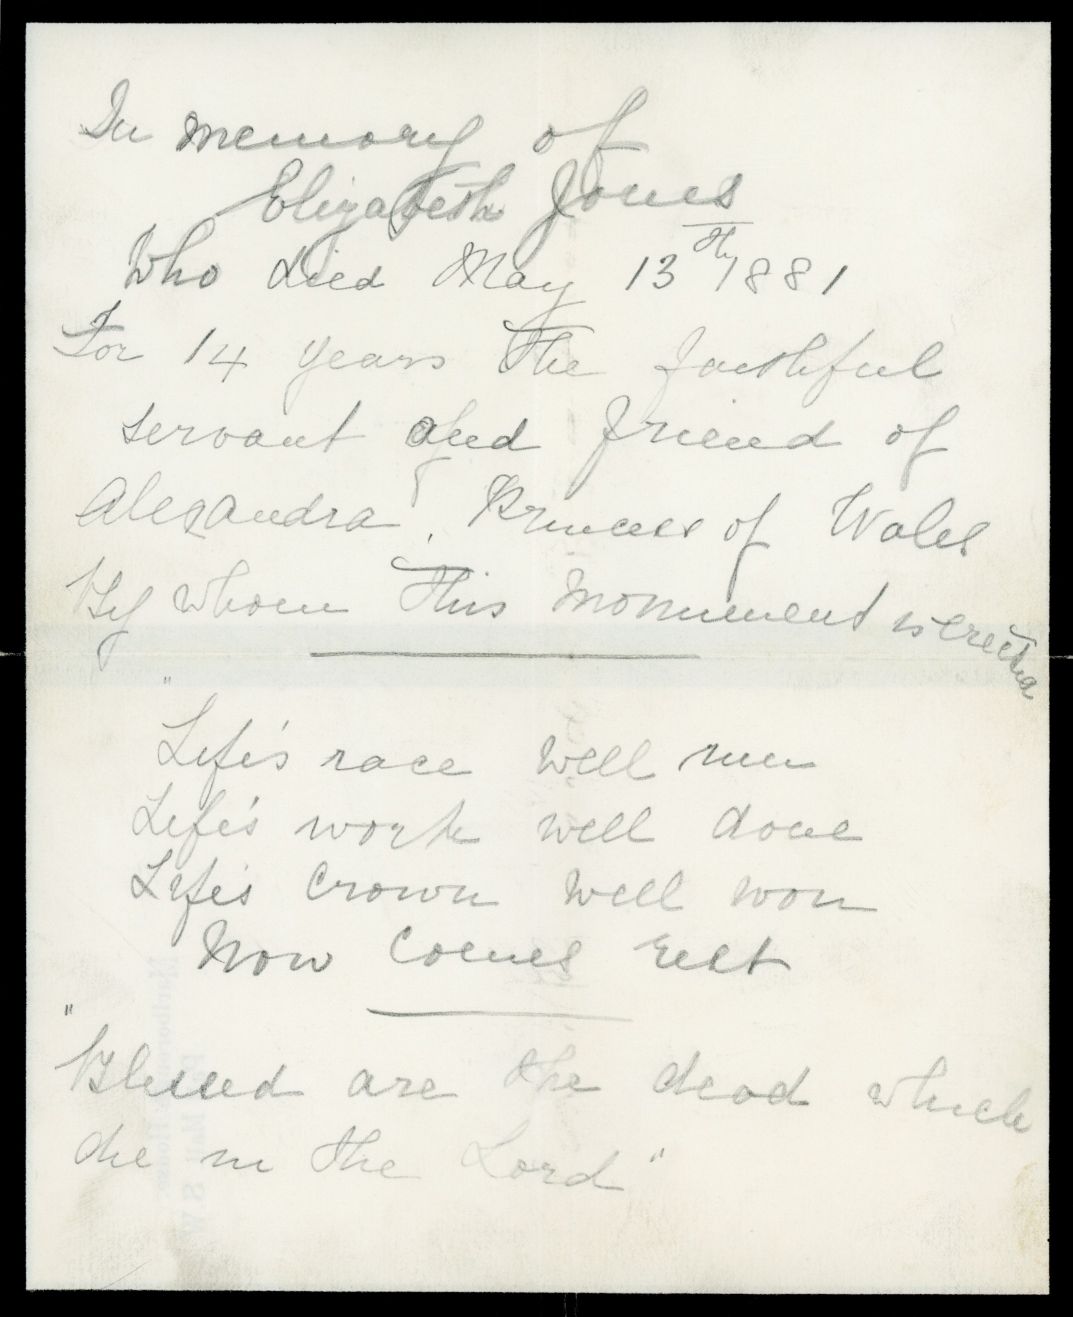 In memory of
Elizabeth Jones
Who died May 13th 1881
For 14 years the faithful
servant and friend of
Alexandra, Princess of Wales
By whom this Monument is erected
"
Life's race well run
Life's work well done
Life's Crown well won
Now Comes rest
"
Blessed are the dead which
die in the Lord"